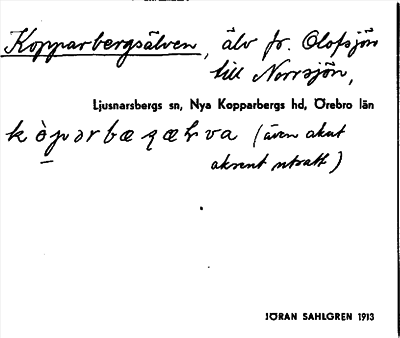 Kopparbergsälven, älv fr. Olofsjön
till Norrsjön,
Ljusnarsbergs sn, Nya Kopparbergs hd, Örebro län
(även akut
aksent uttalt)
JÖRAN SAHLGREN 1913